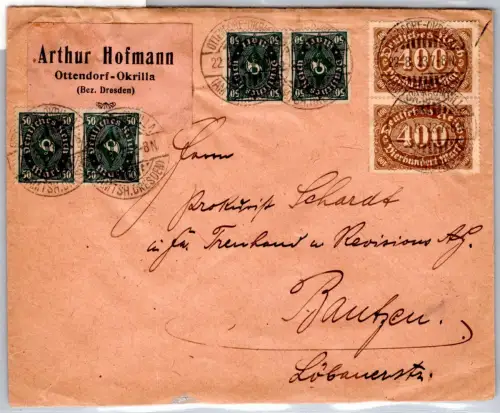 Arthur Hofmann
Ottendorf-Okrilla
(Bez. Dresden)
50 50
Deutsches Reich
50 50
50 50
Deutsches Reich
50 50
Deutsches Reich
400
Vierhundert Mark
Deutsches Reich
400
Vierhundert Mark
22.
Herrn
Prokurist Schardt
i/Fa. Treuhand u Revisions A.G.
Bautzen.
Löbauerstr.